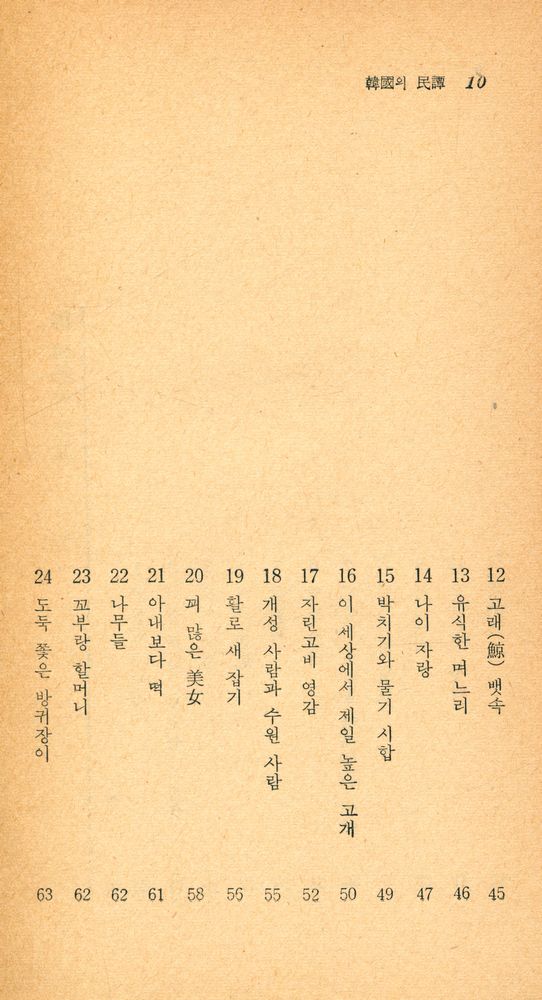 韓國의 民譚 10
12 고래(鯨) 뱃속 45
13 유식한 며느리 46
14 나이 자랑 47
15 박치기와 물기 시합 49
16 이 세상에서 제일 높은 고개 50
17 자린고비 영감 52
18 개성 사람과 수원 사람 55
19 활로 새 잡기 56
20 꾀 많은 美女 58
21 아내보다 떡 61
22 나무들 62
23 꼬부랑 할머니 62
24 도둑 쫓은 방귀장이 63